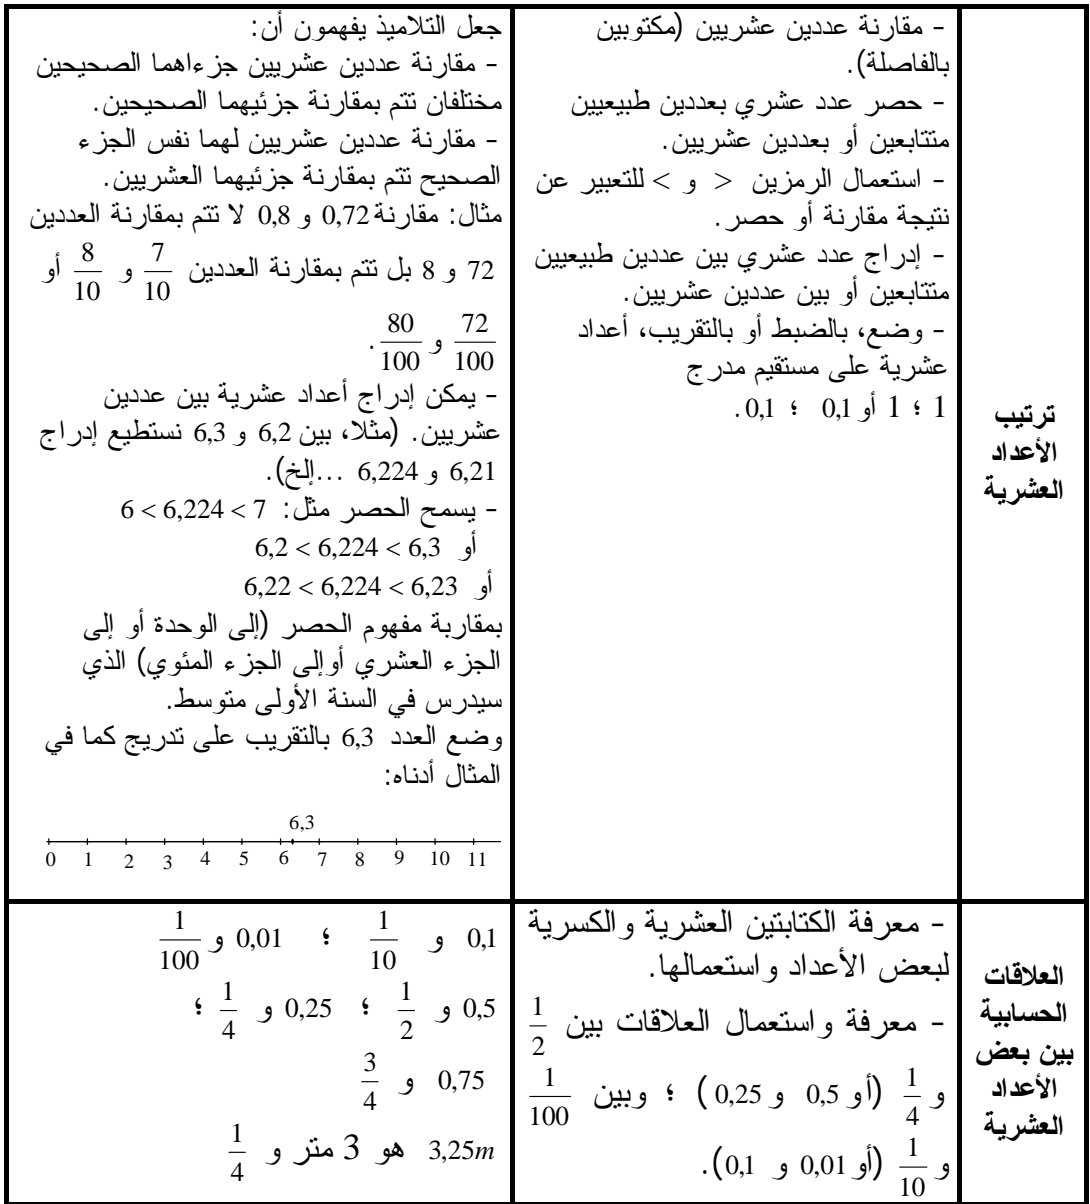 ترتيب
الأعداد
العشرية
- مقارنة عددين عشريين (مكتوبين
بالفاصلة).
- حصر عدد عشري بعددين طبيعيين
متتابعين أو بعددين عشريين.
- استعمال الرمزين > و < للتعبير عن
نتيجة مقارنة أو حصر.
- إدراج عدد عشري بين عددين طبيعيين
متتابعين أو بين عددين عشريين.
- وضع، بالضبط أو بالتقريب، أعداد
عشرية على مستقيم مدرج
1 ؛ 1 أو 0,1 ؛ 0,1.
جعل التلاميذ يفهمون أن:
- مقارنة عددين عشريين جزءاهما الصحيحين
مختلفان تتم بمقارنة جزئيهما الصحيحين.
- مقارنة عددين عشريين لهما نفس الجزء
الصحيح تتم بمقارنة جزئيهما العشريين.
مثال: مقارنة 0,72 و 0,8 لا تتم بمقارنة العددين
72 و 8 بل تتم بمقارنة العددين 7/10 و 8/10 أو
72/100 و 80/100.
- يمكن إدراج أعداد عشرية بين عددين
عشريين. (مثلا، بين 6,2 و 6,3 نستطيع إدراج
6,21 و 6,224 ...إلخ).
- يسمح الحصر مثل: 6 < 6,224 < 7
أو 6,2 < 6,224 < 6,3
أو 6,22 < 6,224 < 6,23
بمقاربة مفهوم الحصر (إلى الوحدة أو إلى
الجزء العشري أوإلى الجزء المئوي) الذي
سيدرس في السنة الأولى متوسط.
وضع العدد 6,3 بالتقريب على تدريج كما في
المثال أدناه:
6,3
0 1 2 3 4 5 6 7 8 9 10 11
العلاقات
الحسابية
بين بعض
الأعداد
العشرية
- معرفة الكتابتين العشرية والكسرية
لبعض الأعداد واستعمالها.
- معرفة واستعمال العلاقات بين 1/2
و 1/4 (أو 0,5 و 0,25) ؛ وبين 1/100
و 1/10 (أو 0,01 و 0,1).
0,1 و 1/10 ؛ 0,01 و 1/100
0,5 و 1/2 ؛ 0,25 و 1/4 ؛
0,75 و 3/4
3,25m هو 3 متر و 1/4